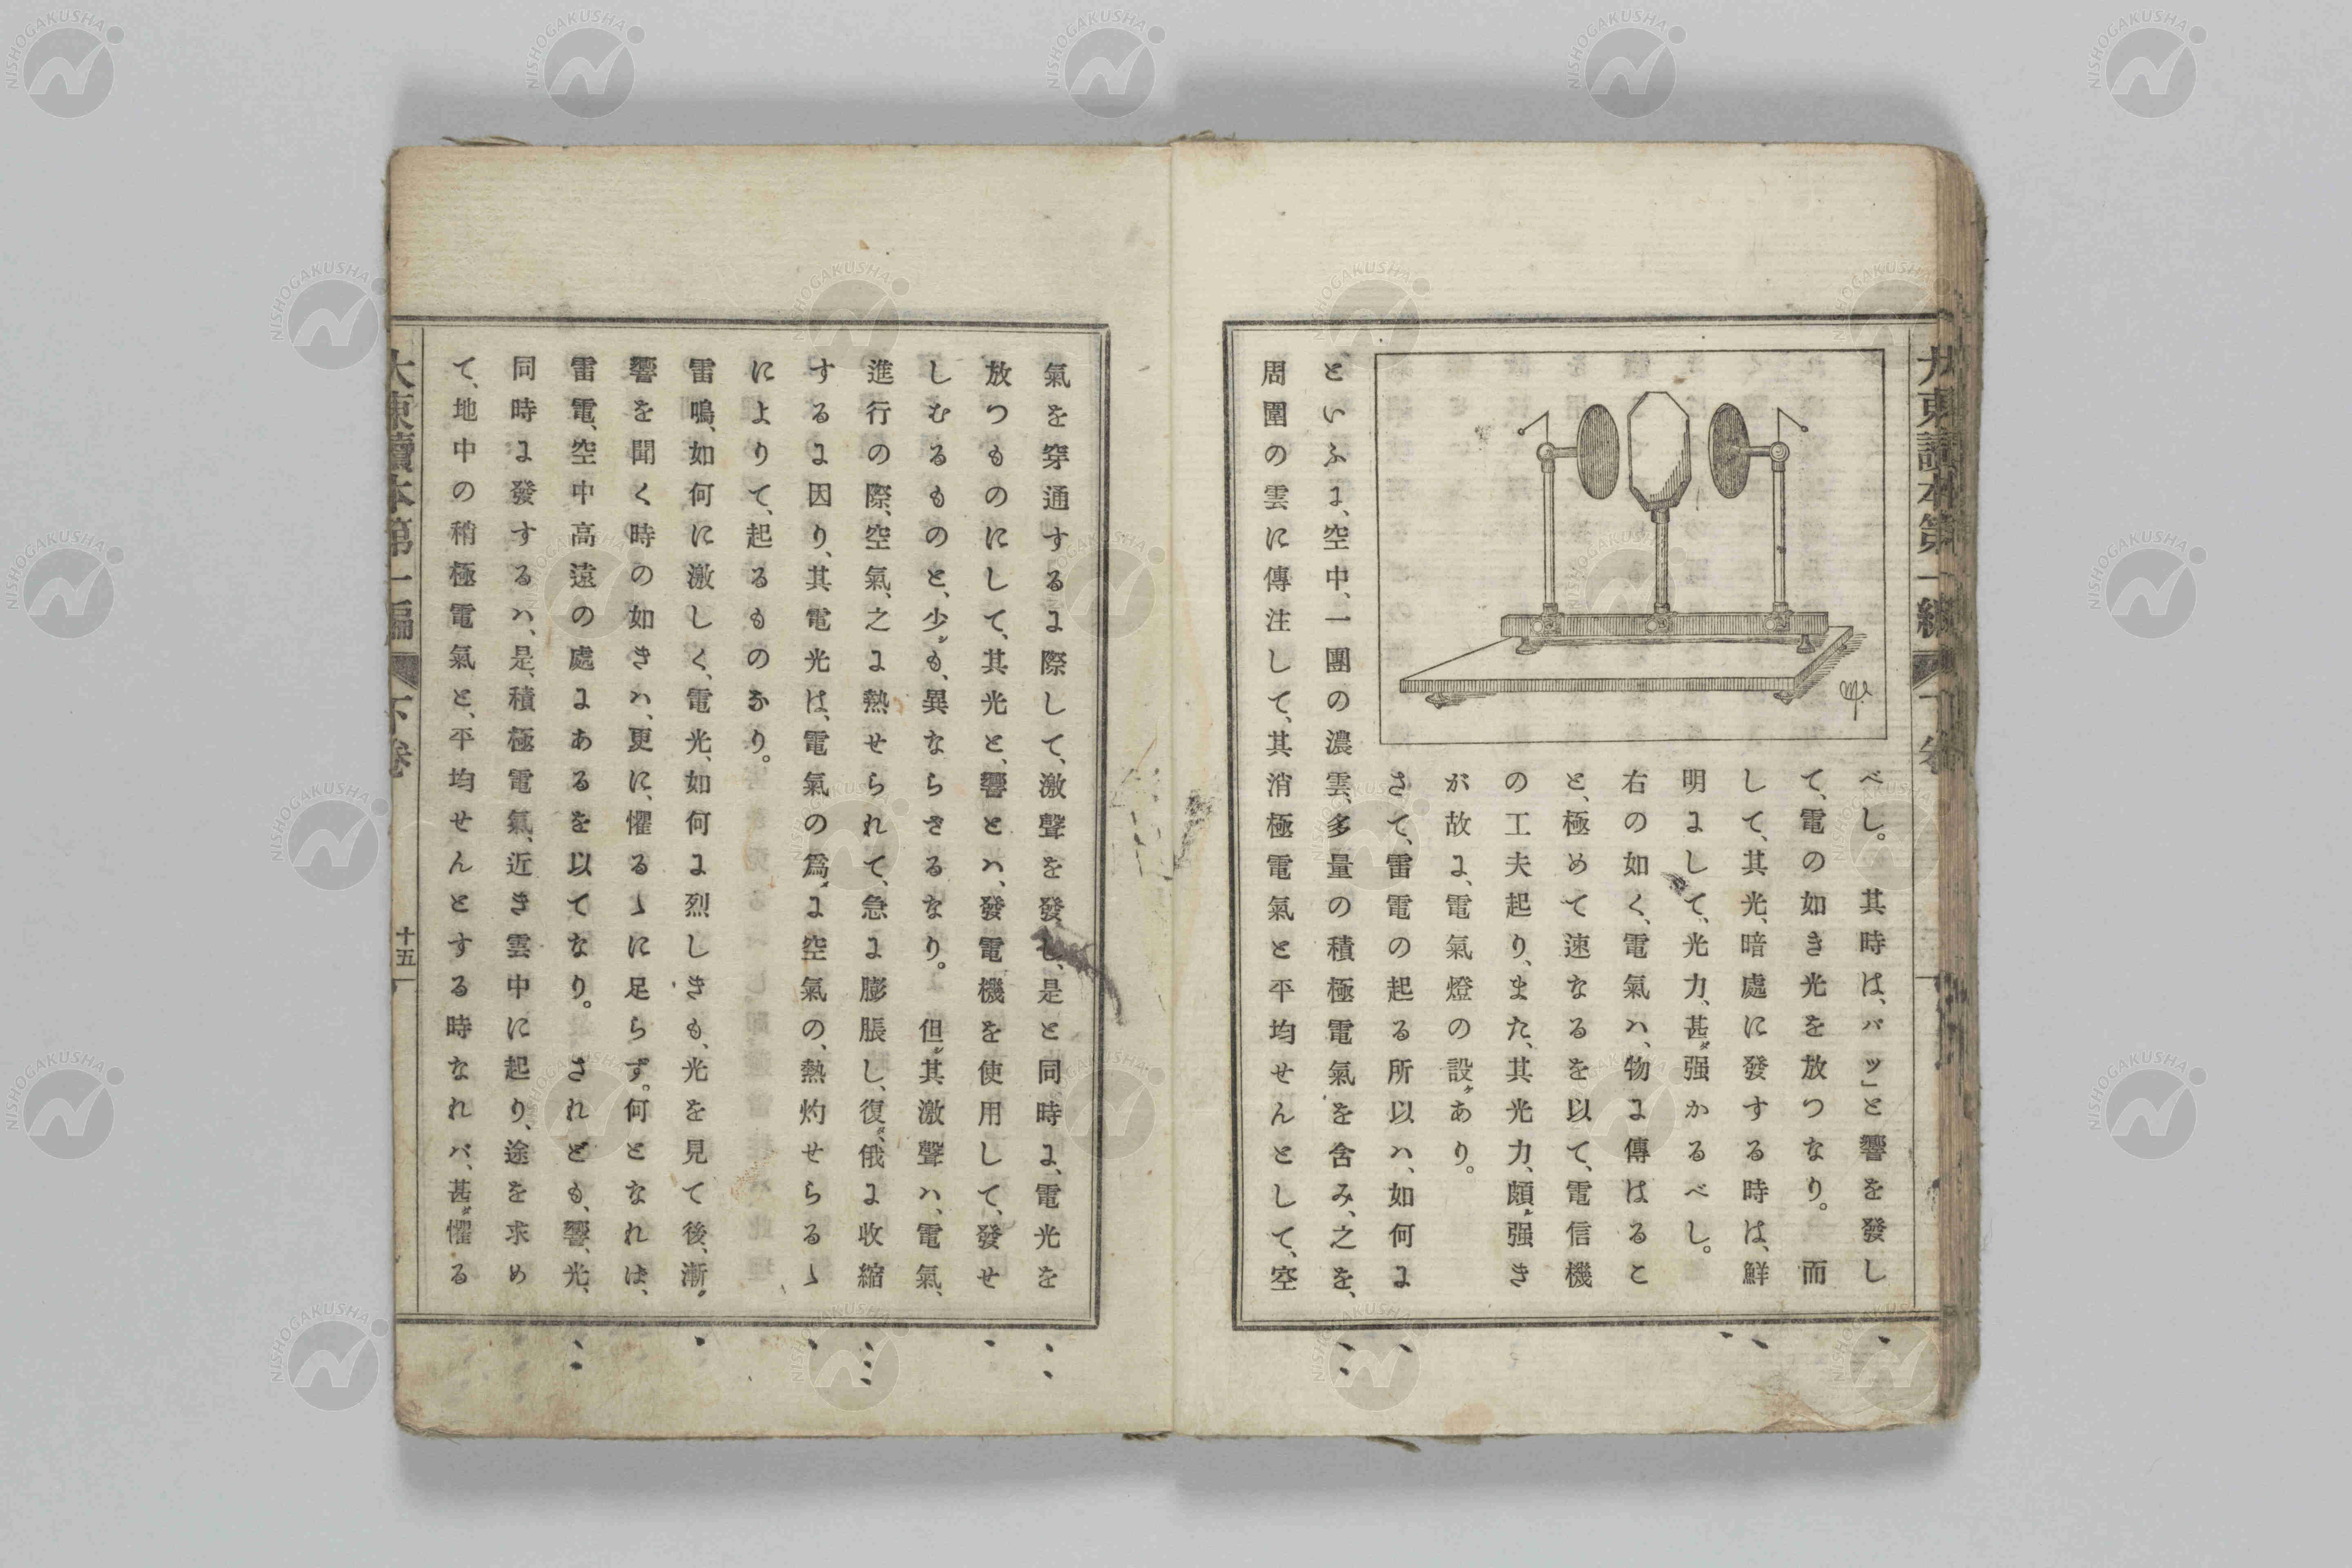 大東讀本第一編 下卷
べし。　其時は、バッ」と響を發し
て、電の如き光を放つなり。　而
して、其光、暗處に發する時は、鮮
明にして、光力、甚ダ强かるべし。
右の如く、電氣ハ、物に傳はるこ
と、極めて速なるを以て、電信機
の工夫起り、また、其光力、頗ル强き
が故に、電氣燈の設ケあり。
さて、雷電の起る所以ハ、如何に
といふに、空中、一團の濃雲、多量の積極電氣を含み、之を、
周圍の雲に傳注して、其消極電氣と平均せんとして、空
氣を穿通するに際して、激聲を發し、是と同時に、電光を
放つものにして、其光と、響とハ、發電機を使用して、發せ
しむるものと、少シも、異ならざるなり。　但シ其激聲ハ、電氣、
進行の際、空氣、之に熱せられて、急に膨脹し、復タ、俄に收縮
するに因り、其電光は、電氣の爲メに空氣の、熱灼せらるゝ
によりて、起るものなり。
雷鳴、如何に激しく、電光、如何に烈しきも、光を見て後、漸ク
響を聞く時の如きハ、更に、懼るゝに足らず。何となれは、
雷電、空中高遠の處にあるを以てなり。　されども、響、光、
同時に發するハ、是、積極電氣、近き雲中に起り、途を求め
て、地中の稍極電氣と、平均せんとする時なれバ、甚ダ懼る
大東讀本第一編 下卷 十五
NISHOGAKUSHA